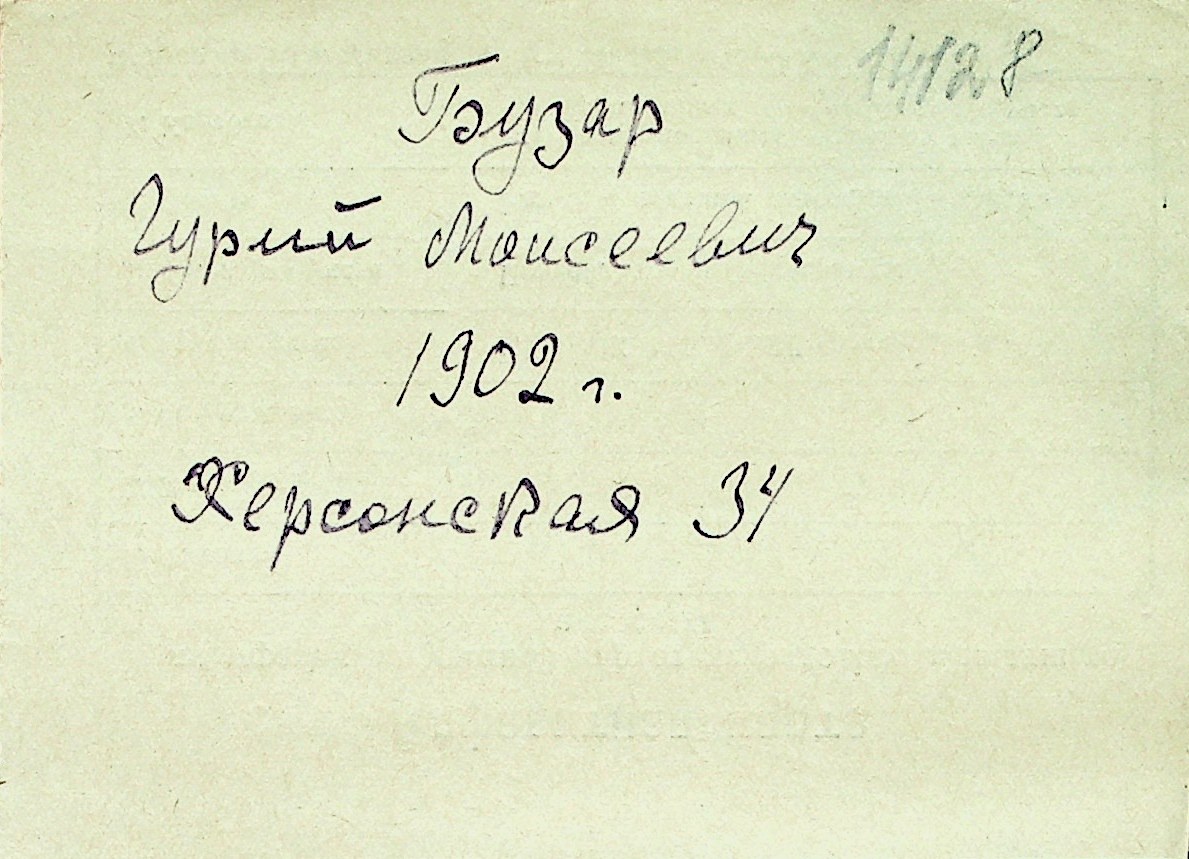 14128
Бузар
Гурий Моисеевич
1902 г.
Херсонская 34